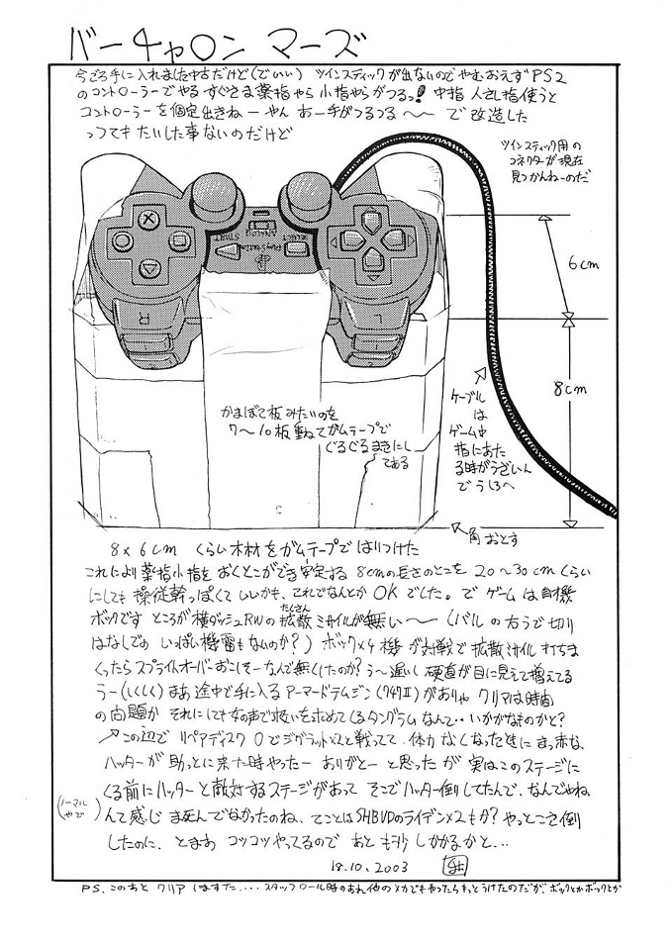 バーチャロン マーズ
今ごろ手に入れました中古だけど(でいい) ツインスティックが出ないのでやむおえずPS2
のコントローラーでやる すぐさま薬指やら小指やらがつるっ! 中指 人さし指使うと
コントローラーを固定出きねーやん あー手がつるつる〜〜 で改造した
っつてもたいした事ないのだけど
ツインスティック用の
コネクターが現在
見つかんねーのだ
SELECT
ANALOG
START
PlayStation
R
L
1
2
1
2
6cm
8cm
ケーブル
は
ゲーム中
指にあた
る時がうざいん
でうしろへ
かまぼこ板みたいのを
7〜10板重ねてガムテープで
ぐるぐるまきにし
てある
角おとす
8×6cm くらい木材をガムテープではりつけた
これにより薬指小指をおくとこができ安定する 8cmの長さのとこを20〜30cmくらい
にしても操縦幹っぽくていいかも、これでなんとかOKでした。で ゲームは自機
ボックです ところが横ダッシュRWの拡散ミサイルが無い〜〜(バルの右うで切り
たくさん
はなしでの いっぱい機雷もなのか?)ボック×4機が対戦で拡散ミサイル打ちま
くったらスプライトオーバーおこしそーなんで無くしたのか? う〜遅い 硬直が目に見えて増えてる
うー(しくしく) まあ途中で手に入るアーマードテムジン(747Ⅱ)がありゃ クリアは時間
の問題か それにしても女の声で扱いを求めてくるタングラムなんて・・いかがなものかと?
↗この辺で リペアディスク0でジグラット×2と戦ってて、体力なくなった時に まっ赤な、
ハッターが助っとに来た時やったー ありがとーと思ったが 実はこのステージに
くる前にハッターと敵対するステージがあって そこでハッター倒してたんで、なんでやねん
(ノーマルやで)
て感じ ま死んでなかったのね、てことはSHBVDのライデン×2もか? やっとこさ倒
したのに、とまあ コツコツやってるので あともう少ししかかるかと...
18.10.2003
PS、このあと クリア はすた....スタッフロール時のおれ他のメカでもやったらもっとうけたのだが、ボックとかボックとか